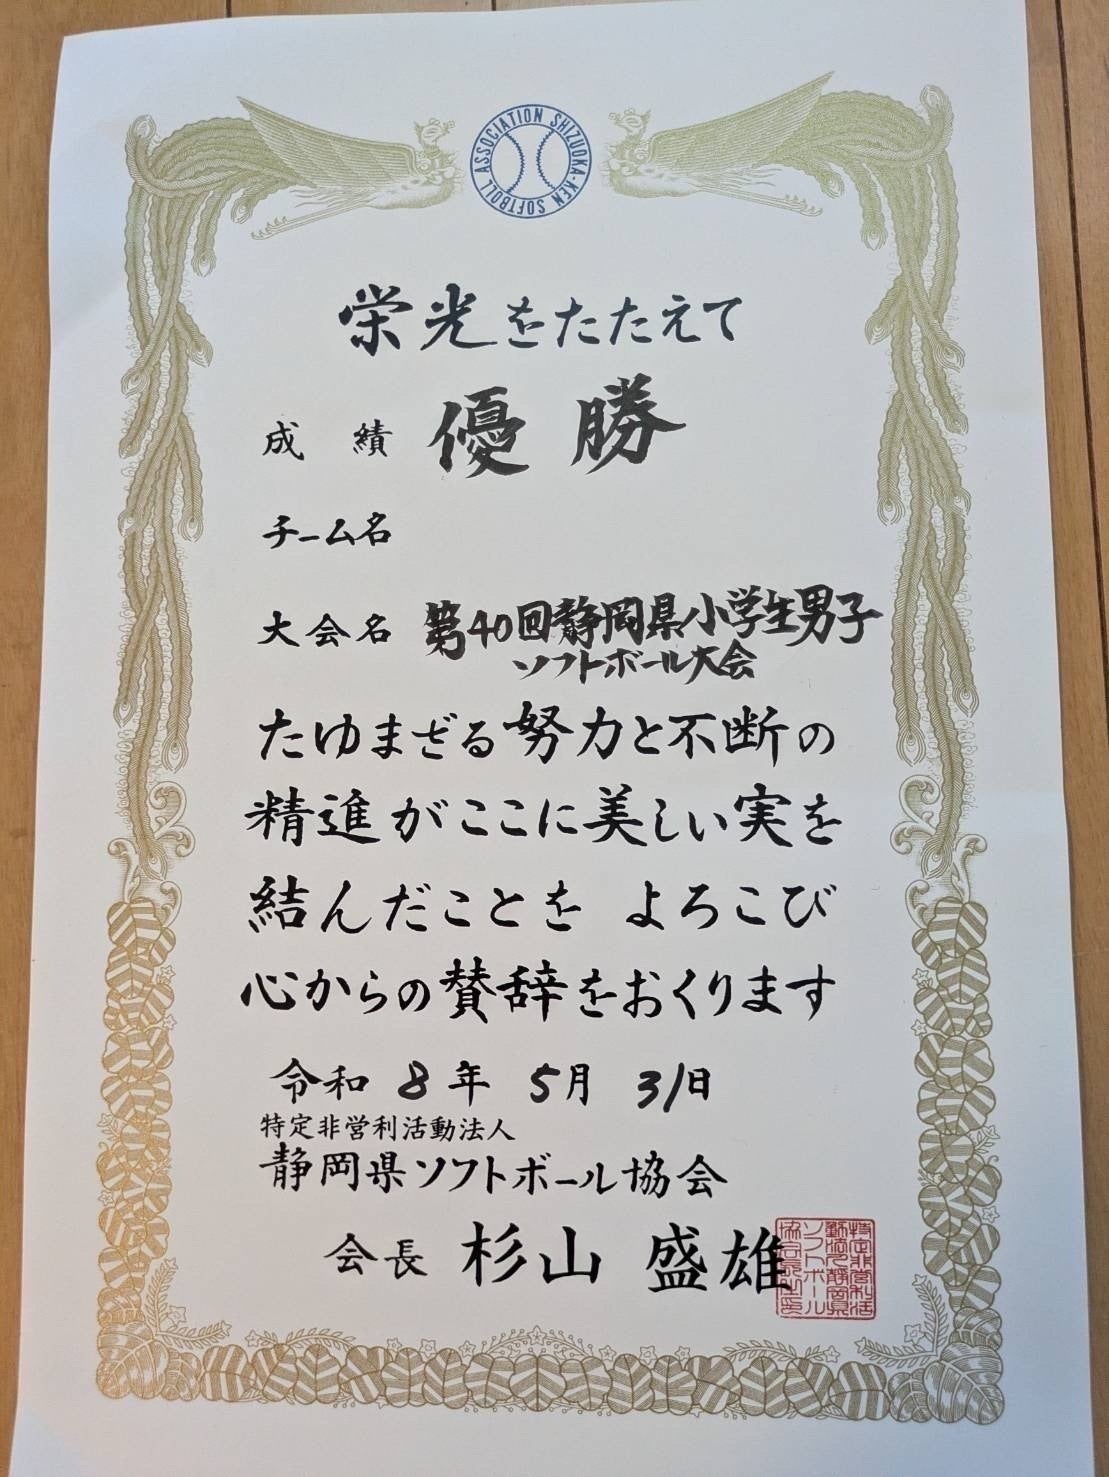 ASSOCIATION SHIZUOKA-KEN SOFTBOLL
栄光をたたえて
成績 優勝
チーム名
大会名 第40回静岡県小学生男子
ソフトボール大会
たゆまざる努力と不断の
精進がここに美しい実を
結んだことを よろこび
心からの賛辞をおくります
令和 8年 5月 31日
特定非営利活動法人
静岡県ソフトボール協会
会長 杉山 盛雄